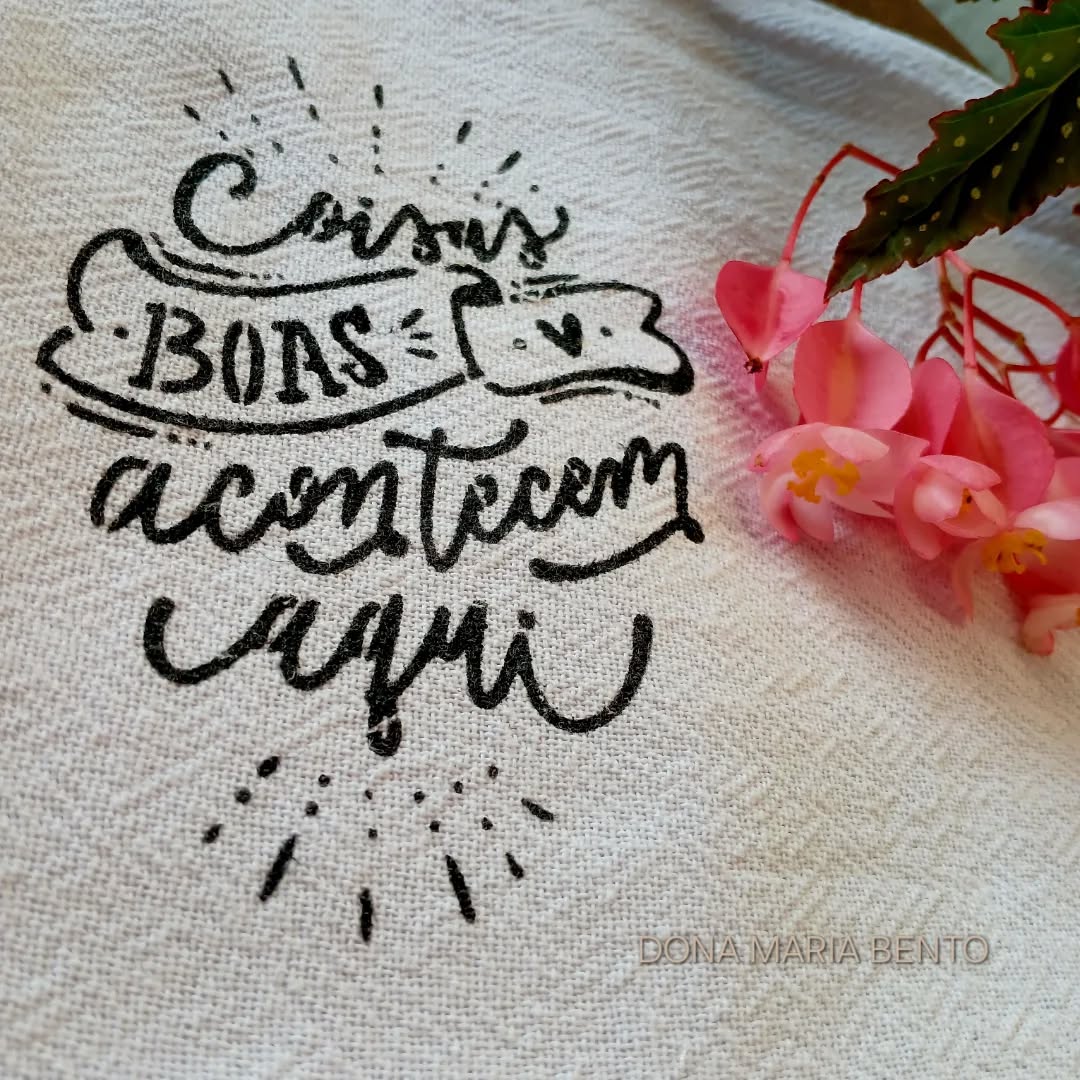 Coisas
BOAS
acontecem
aqui
DONA MARIA BENTO